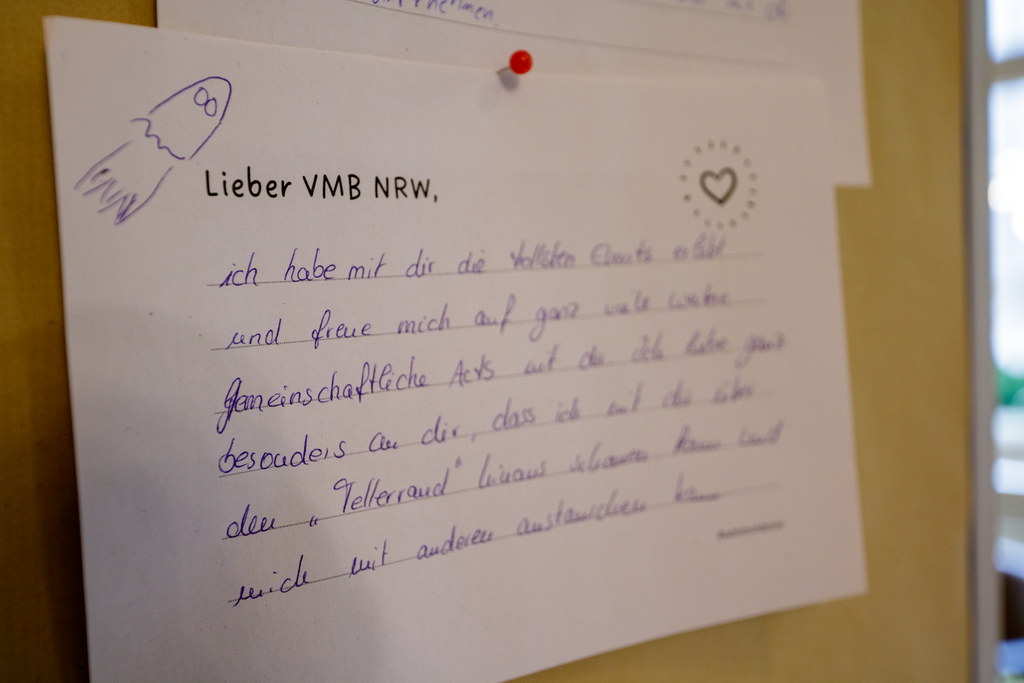 nehmen.
Lieber VMB NRW,
ich habe mit dir die tollsten Events erlebt
und freue mich auf ganz viele weitere
gemeinschaftliche Acts mit dir. Ich liebe ganz
besonders an dir, dass ich mit dir über
den „Tellerrand" hinaus schauen kann und
mich mit anderen austauschen kann